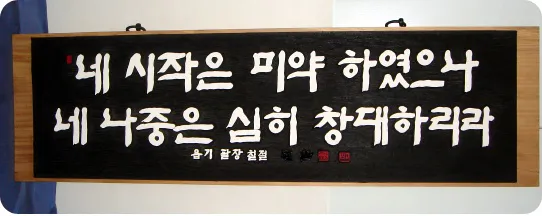 네 시작은 미약 하였으나
네 나중은 심히 창대하리라
욥기 팔장 칠절